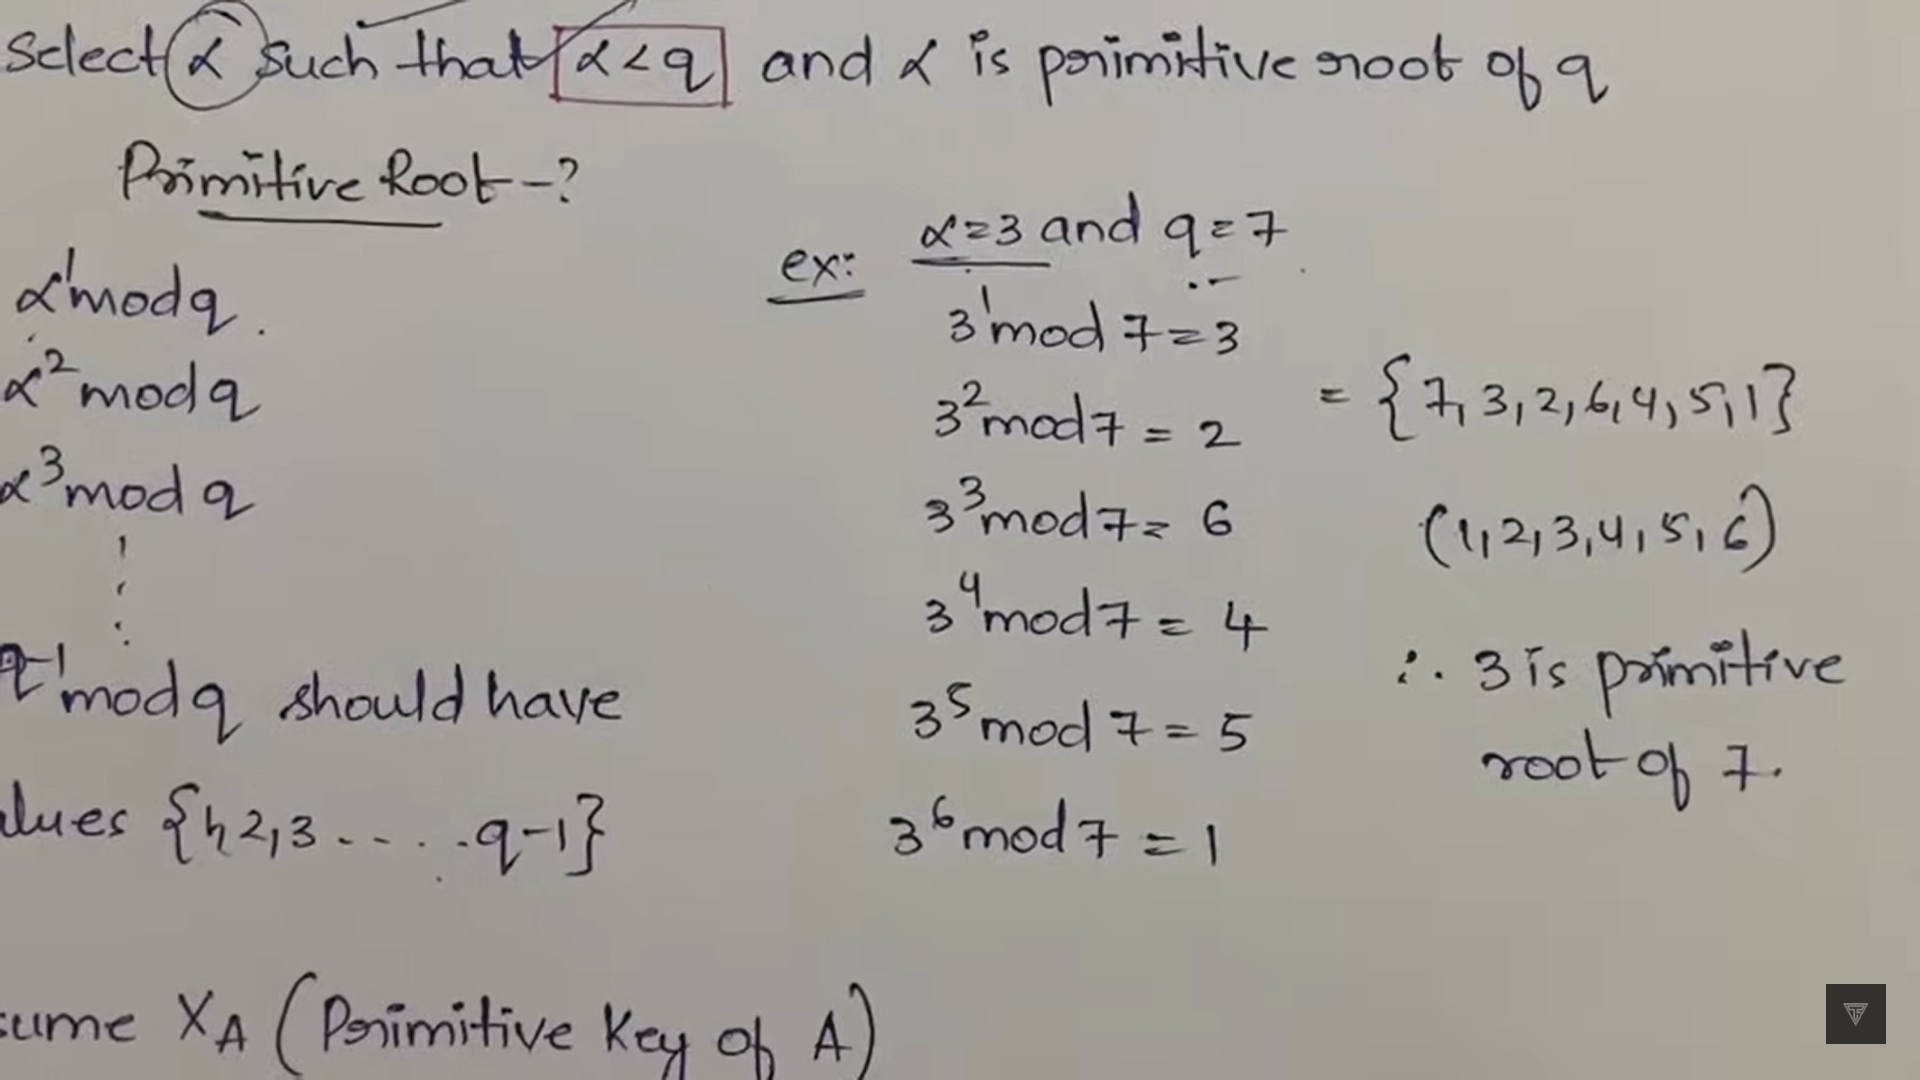 Select α such that α<q and α is primitive root of q
Primitive Root -?
α¹ mod q
α² mod q
α³ mod q
q-1 mod q should have
alues {1, 2, 3 - - . . . q-1}
ex: α=3 and q=7
3¹ mod 7 = 3
3² mod 7 = 2
3³ mod 7 = 6
3⁴ mod 7 = 4
3⁵ mod 7 = 5
3⁶ mod 7 = 1
= {7, 3, 2, 6, 4, 5, 1}
(1, 2, 3, 4, 5, 6)
∴ 3 is primitive
root of 7.
sume X_A (Primitive Key of A)